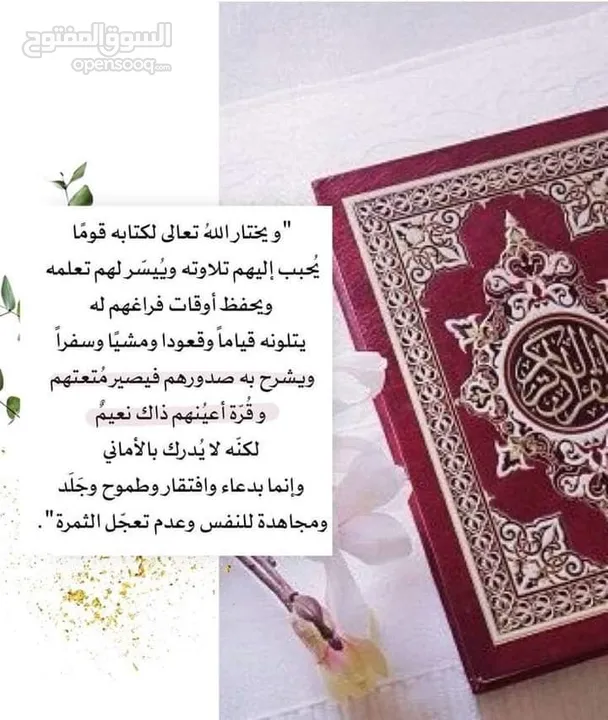 السوق المفتوح
opensooq.com
"ويختار اللهُ تعالى لكتابه قومًا
يُحبب إليهم تلاوته ويُيسَر لهم تعلمه
ويحفظ أوقات فراغهم له
يتلونه قياماً وقعودا ومشيًا وسفراً
ويشرح به صدورهم فيصير مُتعتهم
وقُرّة أعيُنهم ذاك نعيمٌ
لكنّه لا يُدرك بالأماني
وإنما بدعاء وافتقار وطموح وجَلَد
ومجاهدة للنفس وعدم تعجّل الثمرة".
القرآن الكريم